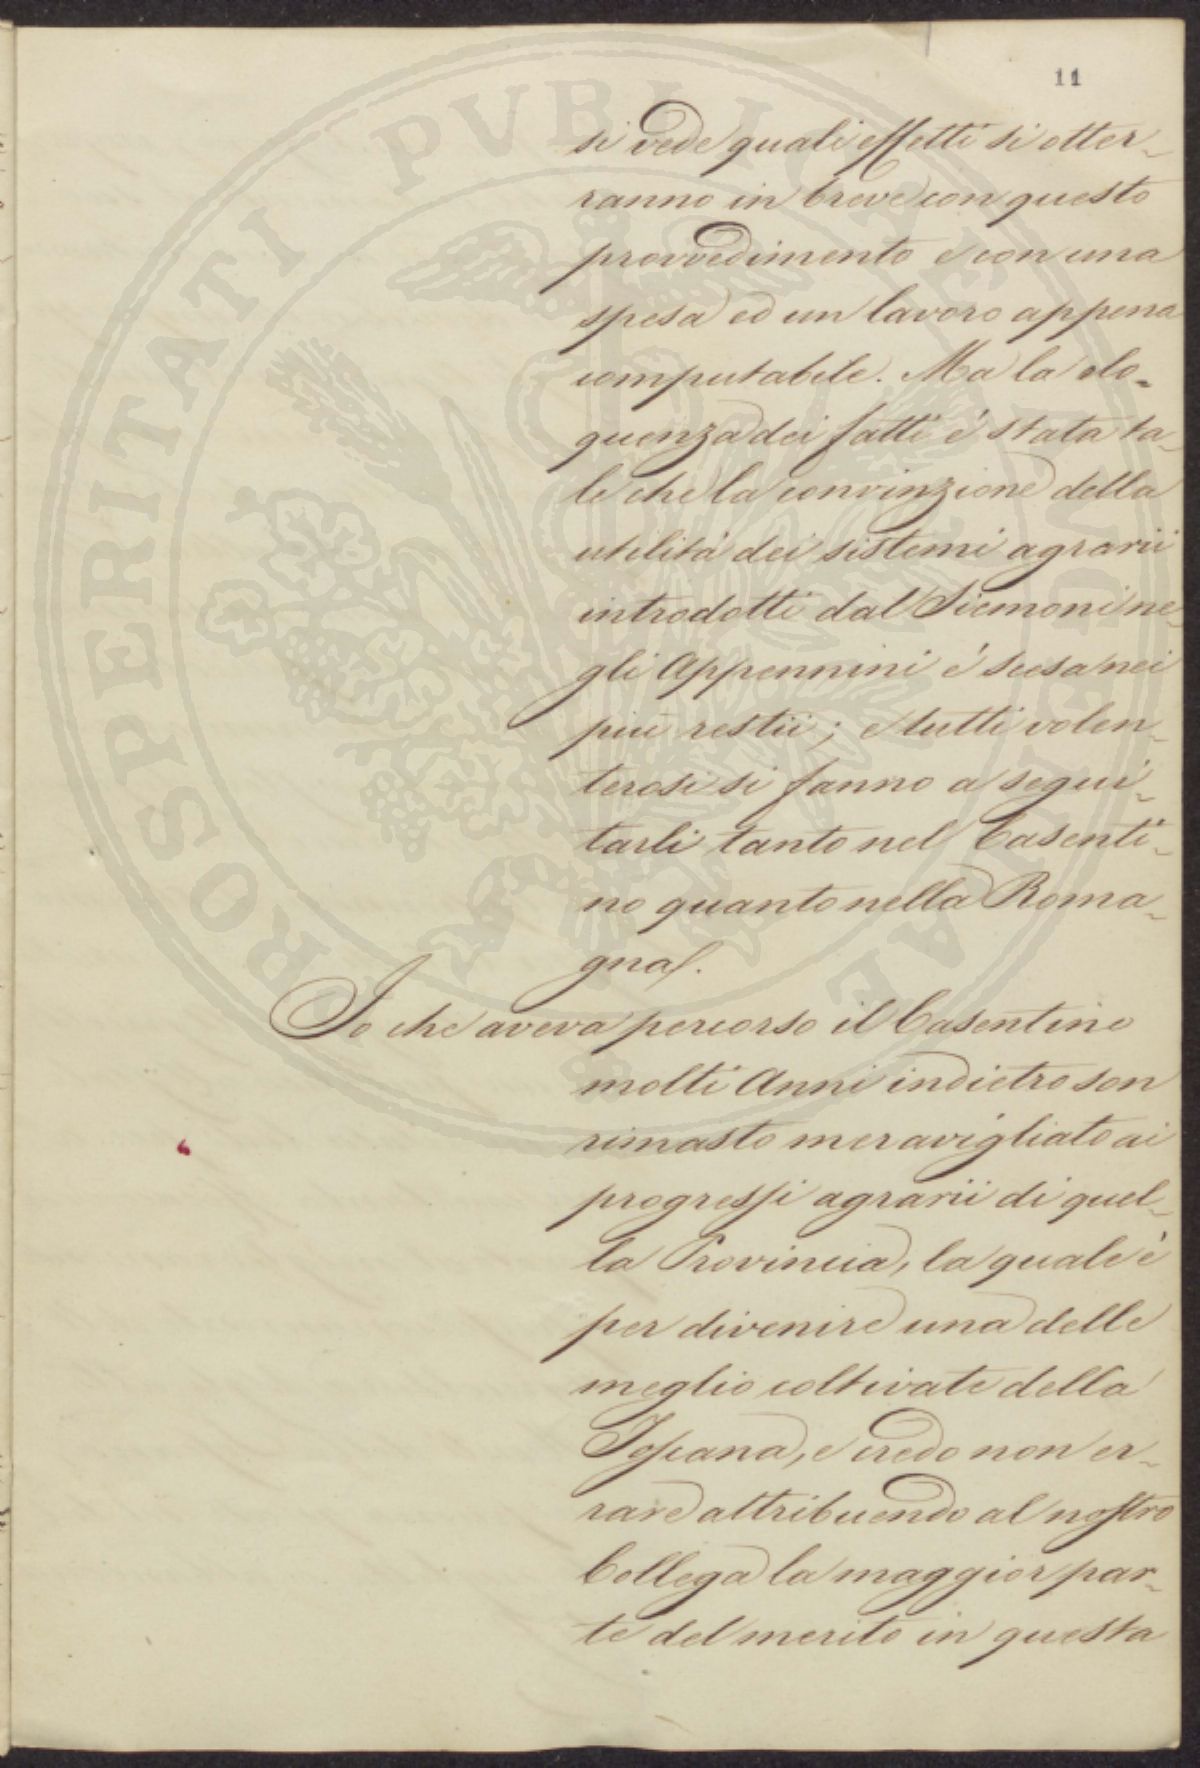 11
si vede quali effetti si otter-
ranno in breve con questo
provvedimento e con una
spesa ed un lavoro appena
computabile. Ma la elo-
quenza dei fatti è stata ta-
le che la convinzione della
utilità dei sistemi agrarii
introdotti dal Siemoni ne-
gli Appennini è scesa nei
più restii; e tutti volen-
terosi si fanno a segui-
tarli tanto nel Casenti-
no quanto nella Roma-
gna.
Io che aveva percorso il Casentino
molti Anni indietro son
rimasto meravigliato ai
progressi agrarii di quel-
la Provincia, la quale è
per divenire una delle
meglio coltivate della
Toscana, e credo non er-
rare attribuendo al nostro
Collega la maggior par-
te del merito in questa
PROSPERITATI PVBLICAE AVGENDAE